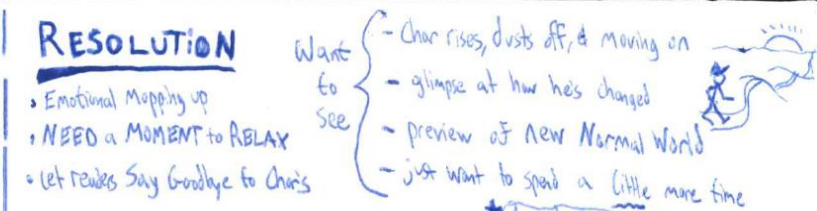 RESOLUTION
• Emotional Mopping up
• NEED a MOMENT to RELAX
• Let readers Say Goodbye to Char's
Want
to
see
- Char rises, dusts off, & moving on
- glimpse at how he's changed
- preview of new Normal World
- just want to spend a little more time